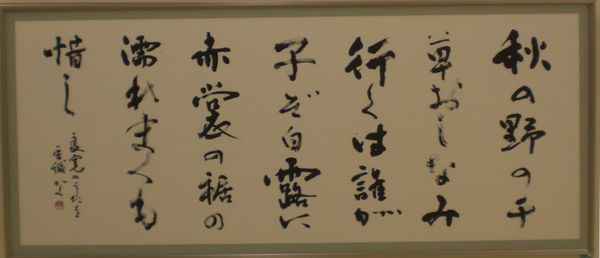 秋の野の千
草おしなみ
行くは誰が
子ぞ白露に
赤裳の裾の
濡れまくも
惜し
良寛のうたを